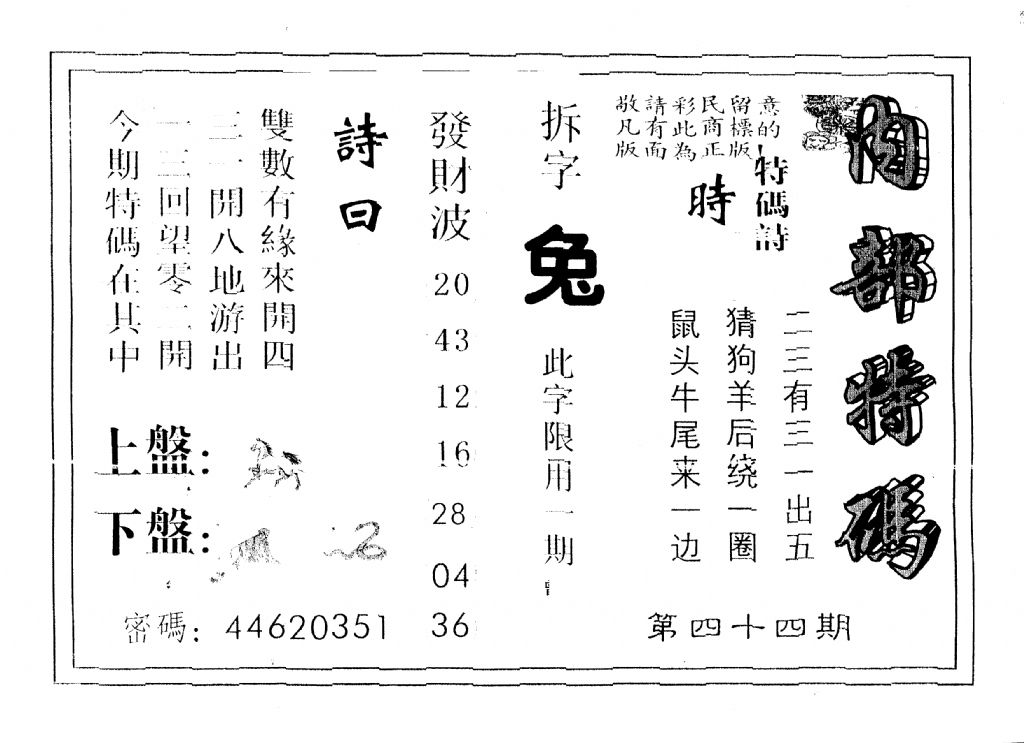 內部特碼
意的
留標版
民商正
彩此為
請有面
敬凡版
特碼詩
時
二三有三一出五
猜狗羊后绕一圈
鼠头牛尾来一边
第四十四期
拆字
兔
此字限用一期
發財波
20
43
12
16
28
04
36
詩曰
雙數有緣來開四
三一開八地游出
一三回望零二開
今期特碼在其中
上盤:
下盤:
密碼: 44620351